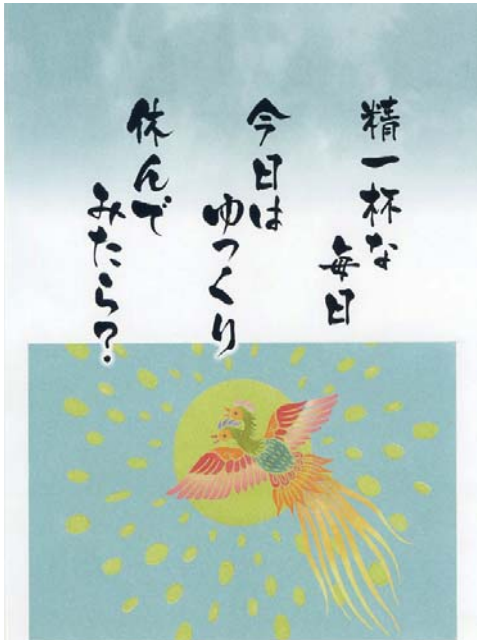 精一杯な
毎日
今日は
ゆっくり
休んで
みたら?